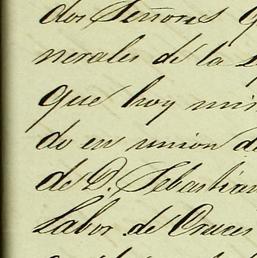 dos Señores
nerales de la
que hoy mis
do en union de
de D. Sebastian
Labor de Cruces